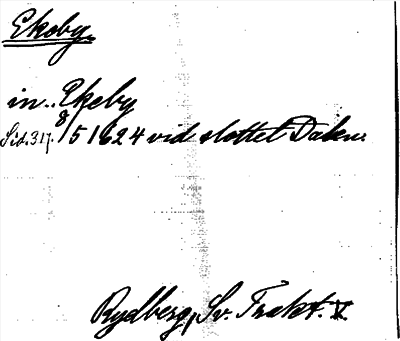 Ekeby.
in. Ekeby
Sid. 317. 8/5 1624 vid slottet Dalen.
Rydberg, Sv. Trakt. V.